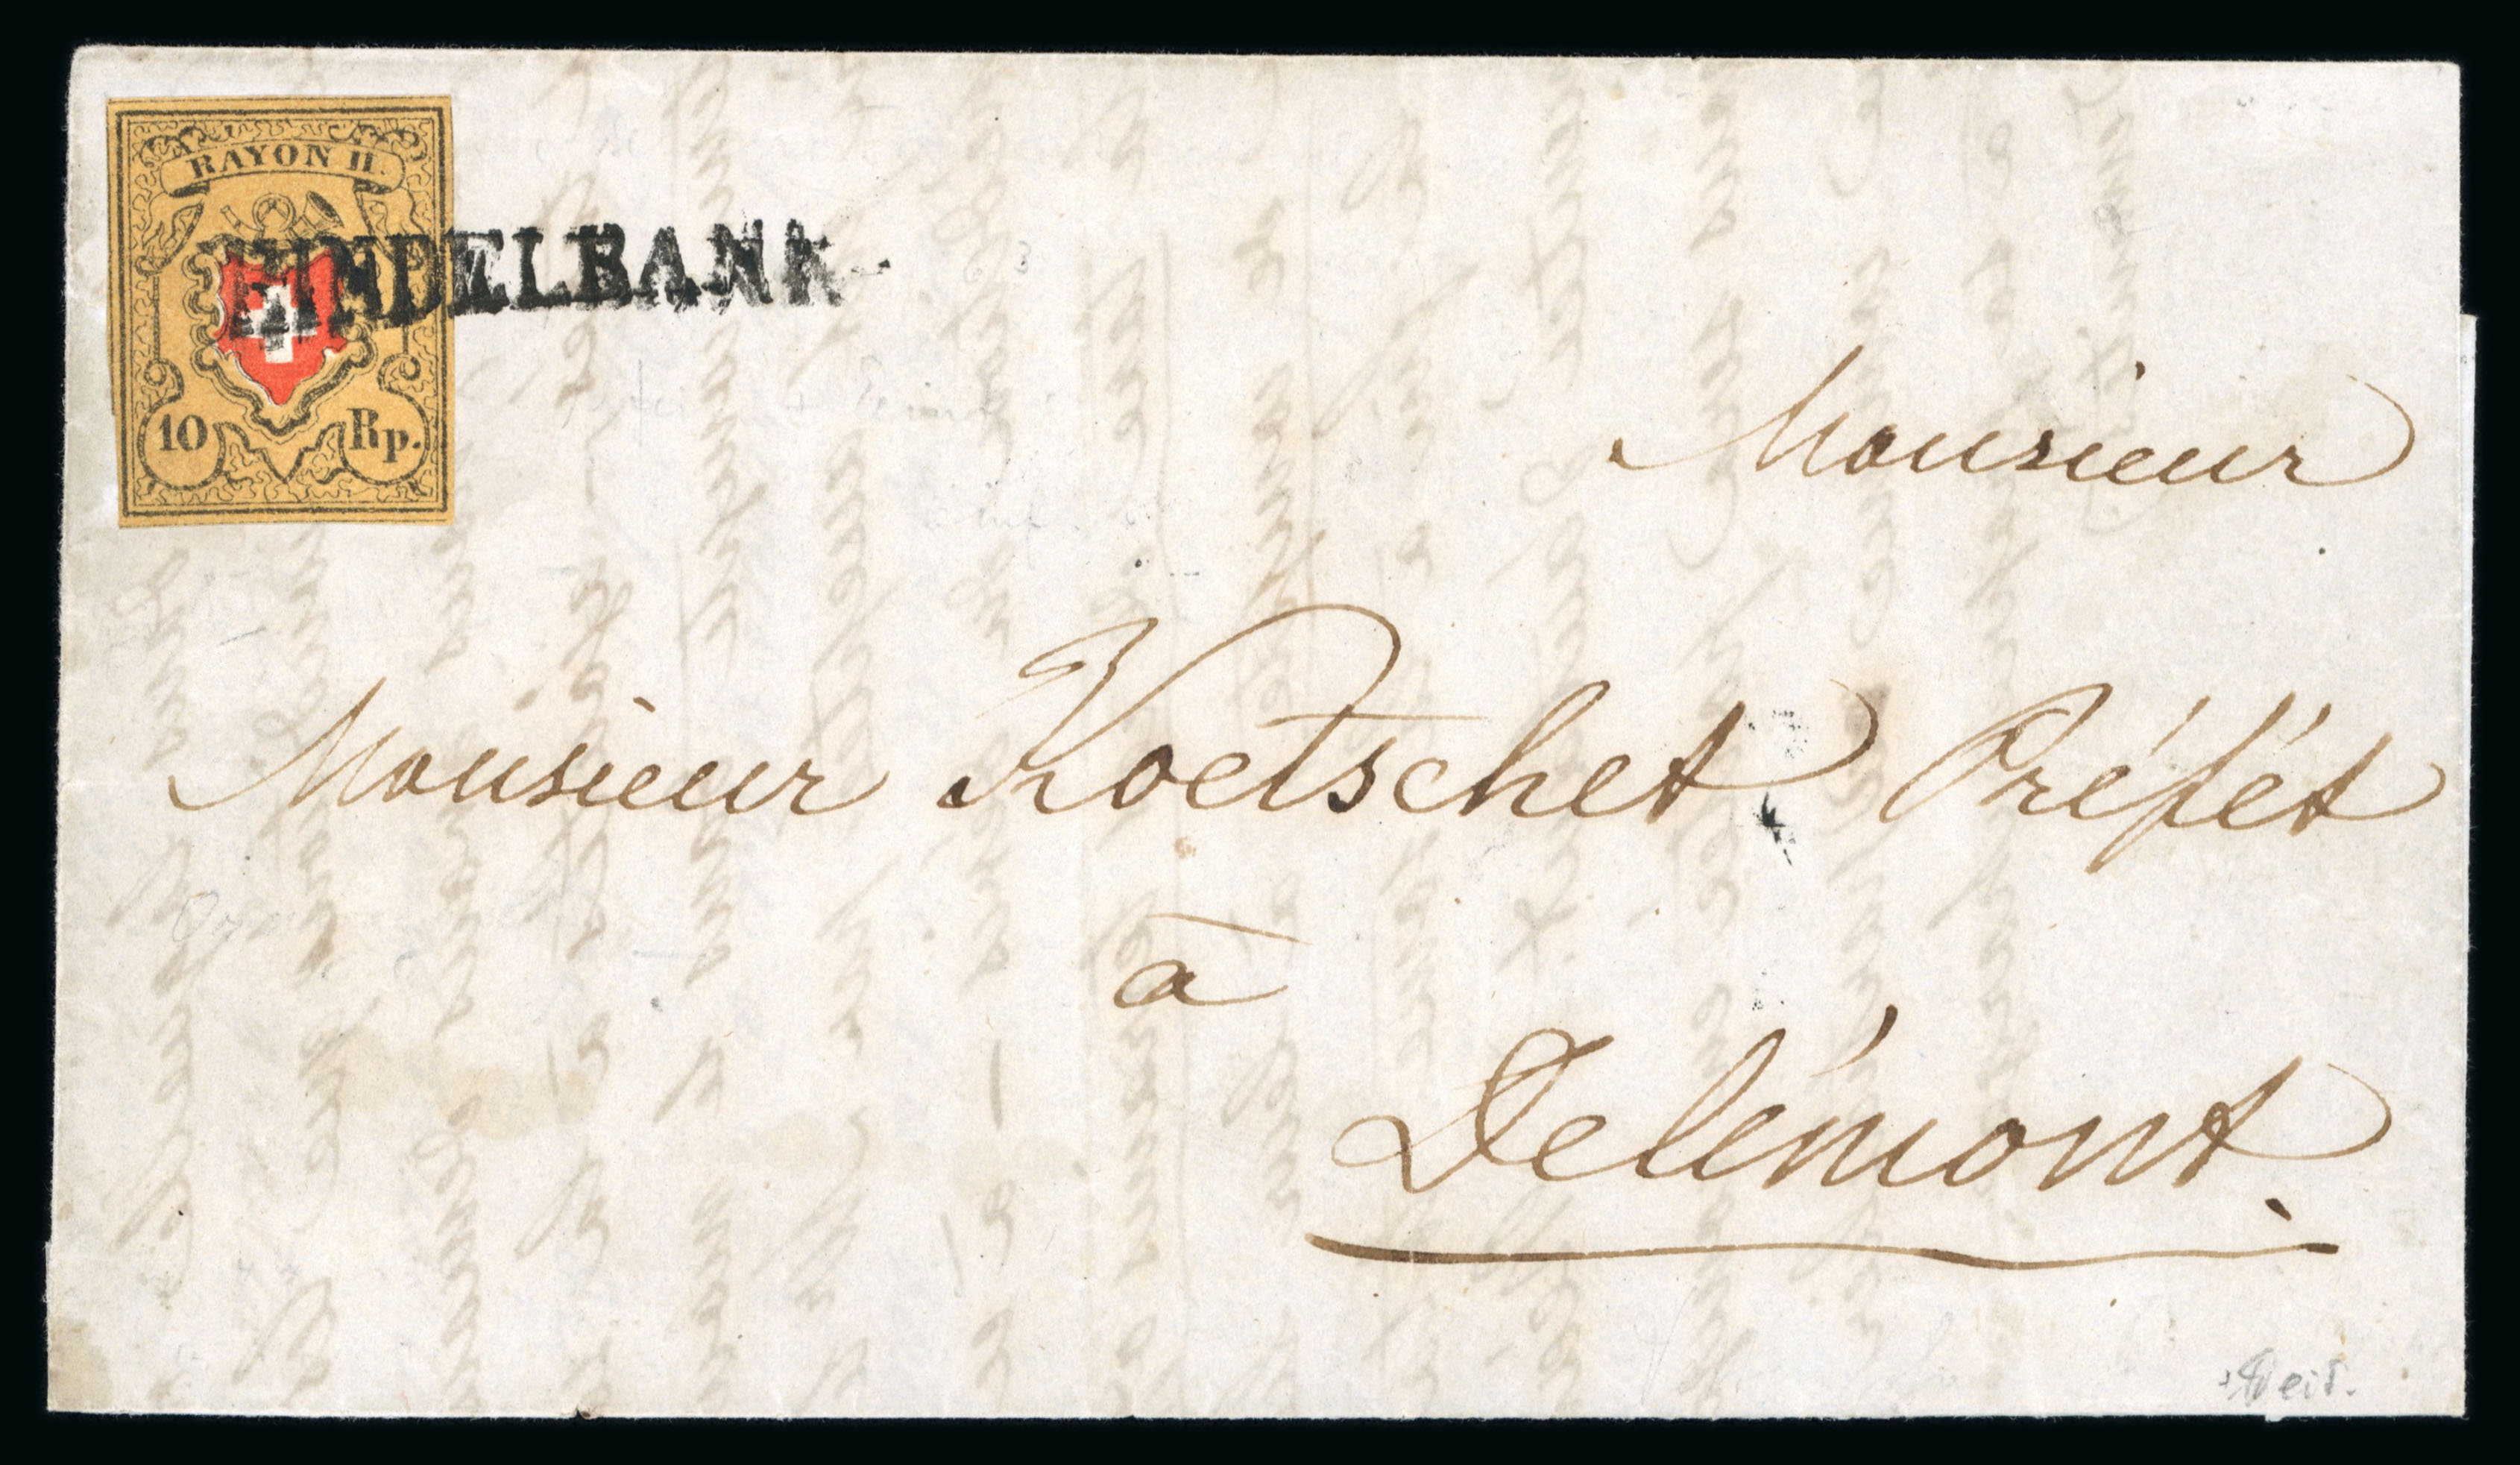 RAYON II.
HINDELBANK
10 Rp.
Monsieur
Monsieur Koetschet Préfét
à
Delémont.